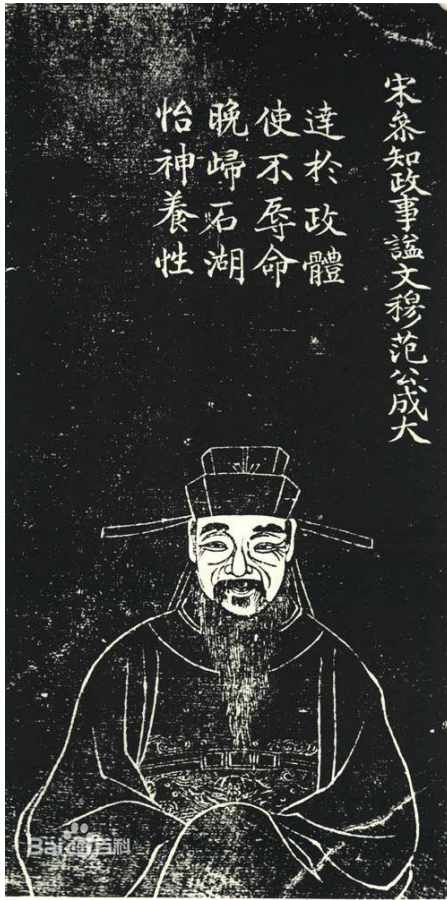 宋參知政事謚文穆范公成大
達於政體
使不辱命
晚歸石湖
怡神養性
Bai百科